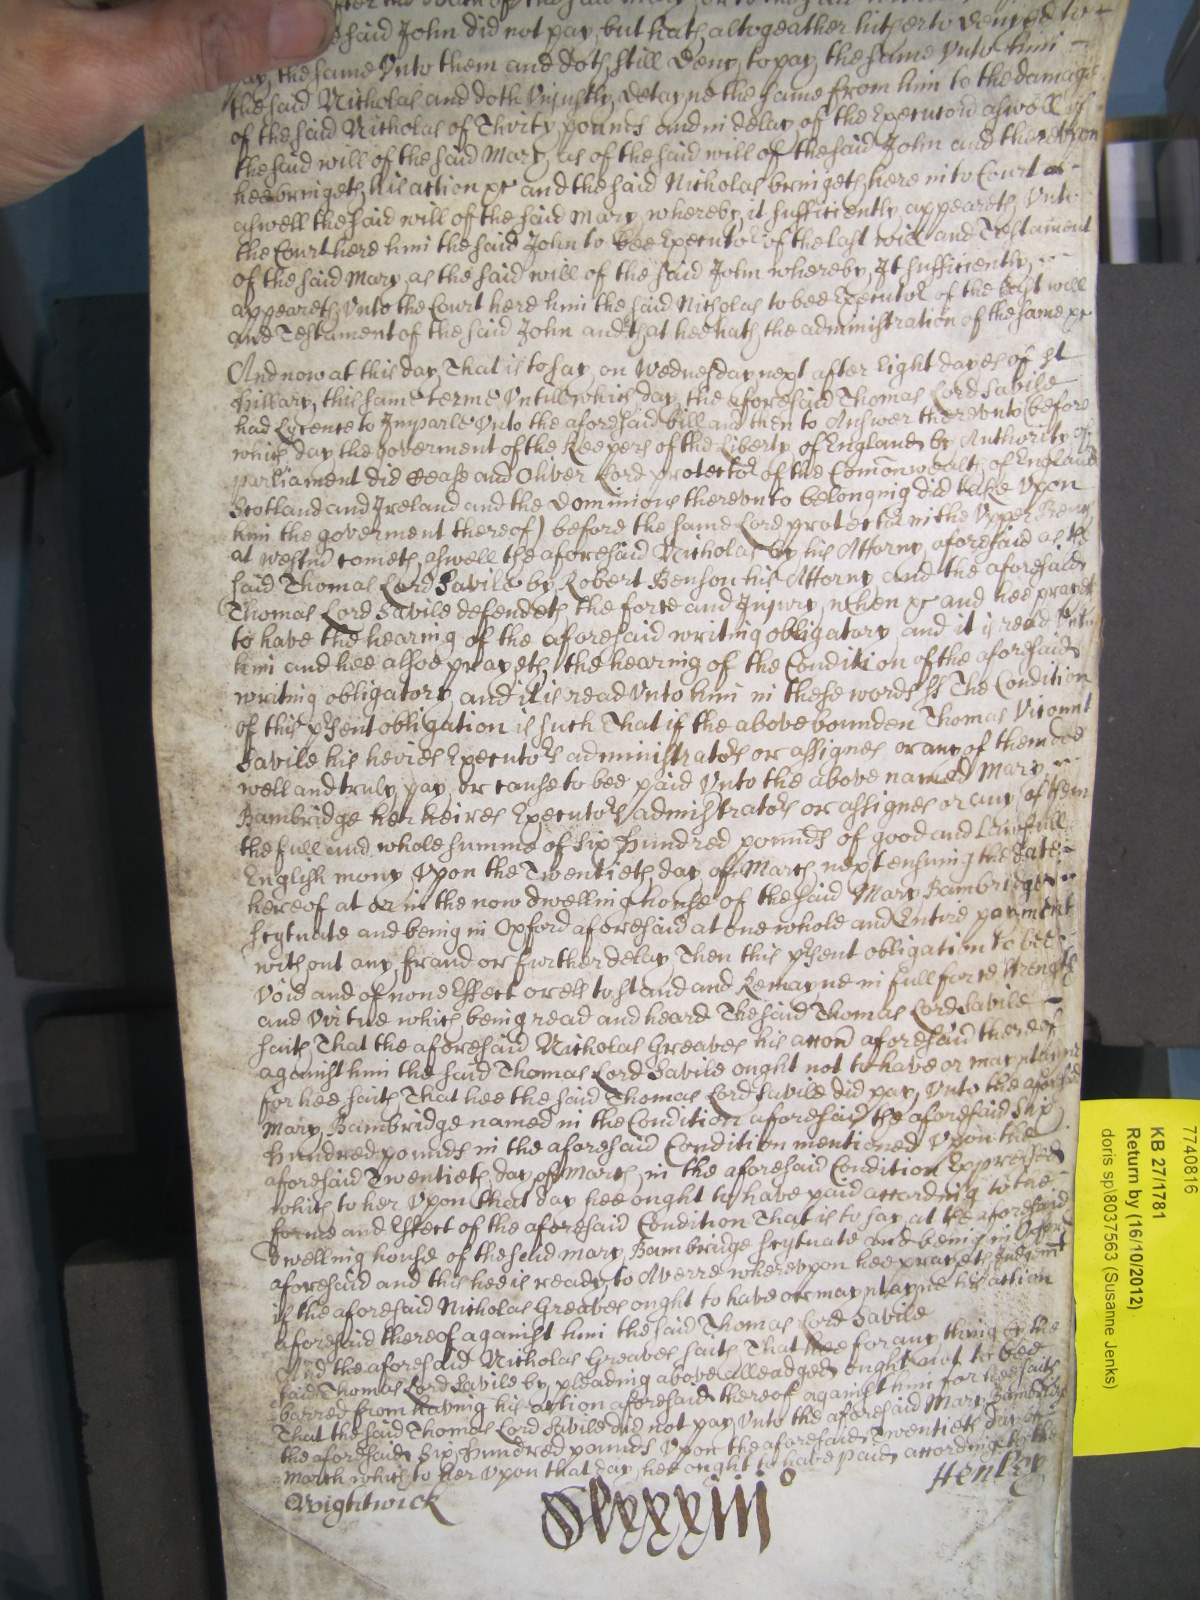 after the death of the said Mary or to the said
said John did not pay, but hath altogeather hitherto denyed to
pay the same Unto them and doth still deny to pay the same Unto him
the said Nicholas and doth Uniustly delayne the same from him to the damage
of the said Nicholas of Thirty pounds and in delay of the Execucon aswell of
the said will of the said Mary as of the said will of the said John and therevpon
hee bringeth his action &c and the said Nicholas bringeth here into Court
aswell the said will of the said Mary whereby it sufficiently appeareth Unto
the Court here him the said John to bee Executor of the last will and Testament
of the said Mary as the said will of the said John whereby It sufficiently
appeareth Unto the Court here him the said Nicholas to bee Executor of the last will
and Testament of the said John and that hee hath the administration of the same &c
And now at this day That is to say on Wednesday next after Eight dayes of St
Hillary this same terme Untill which day the aforesaid Thomas Lord Savile
had Lycence to Imparle Unto the aforesaid bill and then to Answer therevnto (before
which day the goverment of the Keepers of the Liberty of England by Authority of
parliament did cease and Oliver Lord protector of the Comonwealth of England
Scotland and Ireland and the Dominions therevnto belonging did take Vpon
him the goverment thereof) before the same Lord protector in the Vpper Bench
at Westmr cometh aswell the aforesaid Nicholas by his Attorny aforesaid as the
said Thomas Lord Savile by Robert Benson his Attorny And the aforesaid
Thomas Lord Savile defendeth the force and Iniury when &c and hee prayeth
to have the hearing of the aforesaid writing obligatory and it is read Unto
him and hee alsoe prayeth the hearing of the Condition of the aforesaid
writing obligatory and it is read Unto him in these words ss The Condition
of this p'sent obligation is such That if the above bounden Thomas Vicount
Savile his heires Executors administrators or assignes or any of them doe
well and truly pay or cause to bee paid Unto the above named Mary
Bambridge her heires Executors admistrators or assignes or any of them
the full and whole summe of Six Hundred pounds of good and Lawfull
English mony Vpon the Twentieth day of March next ensuing the date
hereof at or in the now dwelling house of the said Mary Bambridge
scytuate and being in Oxford aforesaid at one whole and Entire payment
without any fraud or further delay Then this p'sent obligation to bee
Void and of none Effect or els to stand and Remayne in full force strength
and Virtue which being read and heard The said Thomas Lord Savile
saith That the aforesaid Nicholas Greaves his accon aforesaid thereof
against him the said Thomas Lord Savile ought not to have or mayntayne
for hee saith That hee the said Thomas Lord Savile did pay Unto the aforesaid
Mary Bambridge named in the Condition aforesaid the aforesaid Six
hundred pounds in the aforesaid Condition mentioned Vpon the
aforesaid Twentieth day of March in the aforesaid Condition Expressed
which to her Vpon that day hee ought to have paid according to the
forme and Effect of the aforesaid Condition That is to say at the aforesaid
Dwelling house of the said mary Bambridge scytuate and being in Oxford
aforesaid and this hee is ready to Averre wherevpon hee prayeth Iudgmt
if the aforesaid Nicholas Greaves ought to have or mayntayne his action
aforesaid thereof against him the said Thomas Lord Savile
And the aforesaid Nicholas Greaves saith That hee for any thing by the
said Thomas Lord Savile by pleading above alleadged ought not to bee
barred from having his action aforesaid thereof against him for hee saith
That the said Thomas Lord Savile did not pay Unto the aforesaid Mary Bambridge
the aforesaid Six Hundred pounds Vpon the aforesaid Twentieth day of
March which to her Vpon that day hee ought to have paid according to the
Wightwick
Henley
Clxxxiij o
7740816
KB 27/1781
Return by (16/10/2012)
doris sp\8037563 (Susanne Jenks)